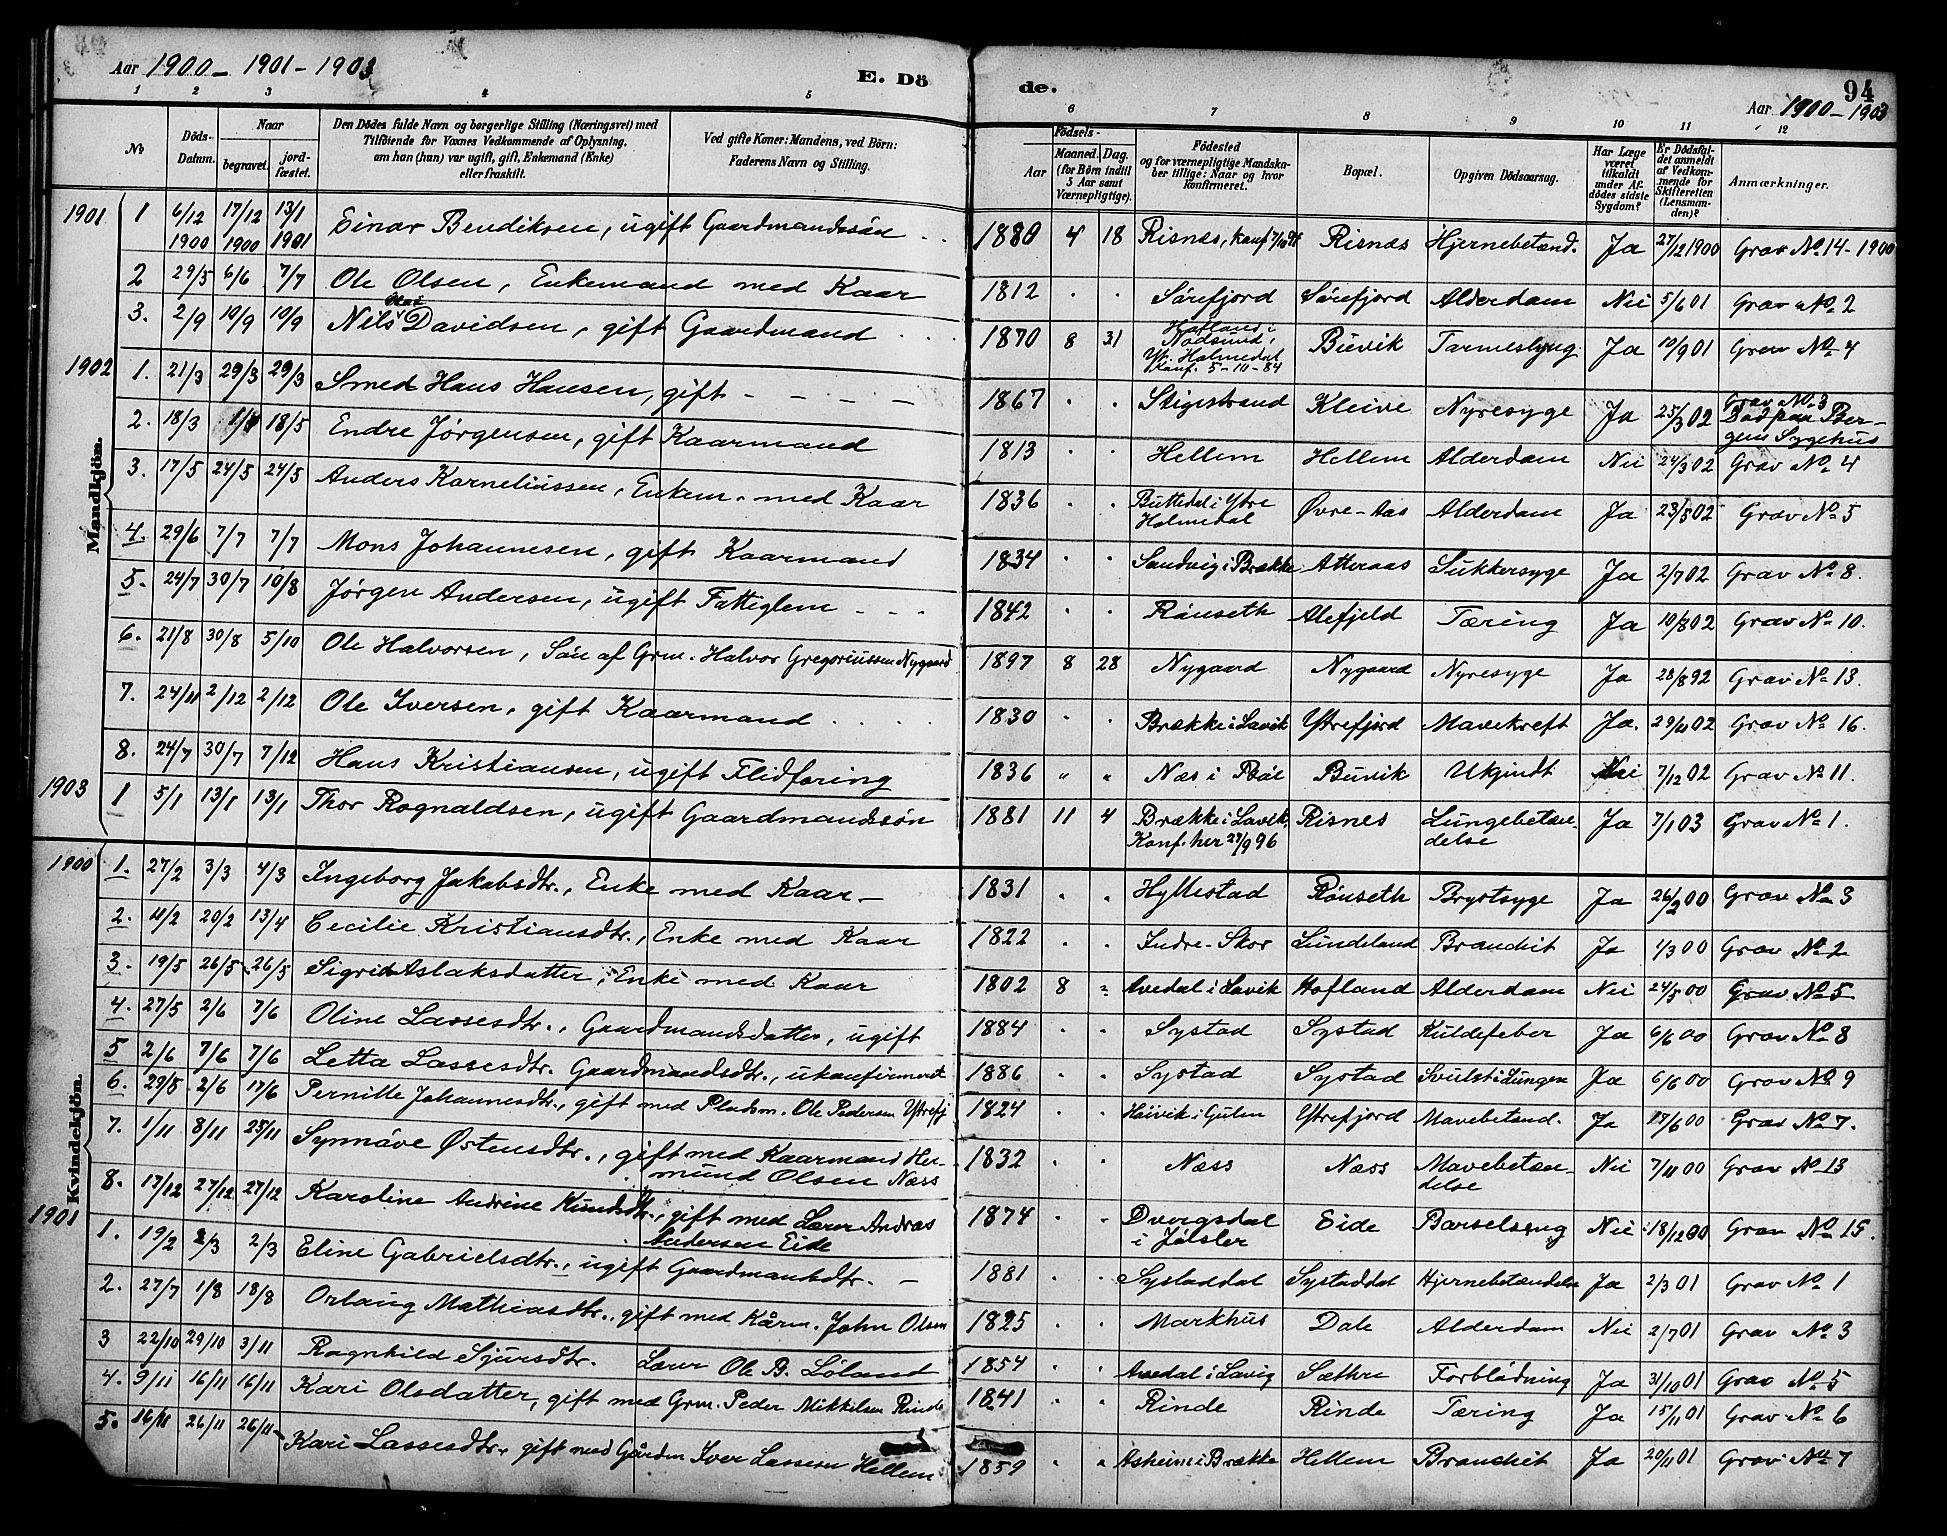 Aar 1900 - 1901 - 1903
E. Dö
de.
94
Aar 1900 - 1903
1 2 3 4 5 6 7 8 9 10 11 12
№
Döds-Datum.
Naar
begravet.
jord-fæstet.
Den Dödes fulde Navn og borgerlige Stilling (Næringsvei) med
Tilföiende for Voxnes Vedkommende af Oplysning,
om han (hun) var ugift, gift, Enkemand (Enke)
eller fraskilt.
Ved gifte Koner: Mandens, ved Börn:
Faderens Navn og Stilling.
Födsels-
Aar
Maaned. Dag.
(for Börn indtil
5 Aar samt
Værnepligtige).
Födested
og for værnepligtige Mandska-
ber tillige: Naar og hvor
konfirmeret.
Bopæl.
Opgiven Dödsaarsag.
Har Læge
været
tilkaldt
under Af-
dödes sidste
Sygdom?
Er Dödsfal-
det anmeldt
af Vedkom-
mende for
Skifteretten
(Lensman-
den)?
Anmærkninger.
Mandkjön.
1901 1 6/12 1900 17/12 1900 13/1 1901 Einar Bendiksen, ugift Gaardmandssön 1880 4 18 Risnæs, konf. Risnæs Hjernebetænd. Ja 27/12 1900 Grav № 14 - 1900
2 29/5 6/6 7/7 Ole Olsen, Enkemand med Kaar 1812 Sörefjord Sörefjord Alderdom Nei 5/6 01 Grav № 2
3. 2/9 10/9 10/9 Nils Olai Davidsen, gift Gaardmand 1870 8 31 Hofland i Ytr. Holmedal Konf. 5-10-84 Buvik Tarmeslyng. Ja 10/9 01 Grav № 4
1902 1. 21/3 29/3 29/3 Smed Hans Hansen, gift 1867 Stigestrand Kleive Nyresyge Ja 25/3 02 Grav № 3 Död paa Ber-
gens Sygehus
2. 18/3 18/5 Endre Jørgensen, gift Kaarmand 1813 Hellem Hellem Alderdom Nei 24/3 02 Grav № 4
3. 17/5 24/5 24/5 Anders Korneliussen, Enkem. med Kaar 1836 Buttedal i Ytre Holmedal Øvre-Aas Alderdom Ja 23/5 02 Grav № 5
4. 29/6 7/7 7/7 Mons Johannesen, gift Kaarmand 1834 Sandvig i Brække Atteraas Sukkersyge Ja 2/7 02 Grav № 8.
5. 24/7 30/7 10/8 Jørgen Andersen, ugift Fattiglem 1842 Rönseth Alefjeld Tæring Ja 10/8 02 Grav № 10.
6. 21/8 30/8 5/10 Ole Halvorsen, Sön af Grm. Halvor Gregoriussen Nygaard 1897 8 28 Nygaard Nygaard Nyresyge Ja 28/8 92 Grav № 13.
7. 24/11 2/12 2/12 Ole Iversen, gift Kaarmand 1830 Brække i Lavik Ytrefjord Mavekreft Ja. 29/11 02 Grav № 16.
8. 24/7 30/7 7/12 Hans Kristiansen, ugift Flidföring 1836 " " Næs i Böe Buvik Ukjendt Nei 7/12 02 Grav № 11.
1903 1 5/1 13/1 13/1 Thor Rognaldsen, ugift Gaardmandssøn 1881 11 4 Brække i Lavik, Konf. her 27/9 96 Risnes Lungebetæn-
delse Ja 7/1 03 Grav № 1.
Kvindekjön.
1900 1. 27/2 3/3 4/3 Ingeborg Jakobsdtr., Enke med Kaar 1831 Hyllestad Rönseth Brystsyge Ja 26/2 00 Grav № 3
2. 11/2 20/2 13/4 Cecilie Kristiansdtr., Enke med Kaar 1822 Indre-Skor Lindeland Bronchit Ja 1/3 00 Grav № 2
3. 19/5 26/5 26/5 Sigrid Aslaksdatter, Enke med Kaar 1802 8 " Avedal i Lavik Hofland Alderdom Nei 24/5 00 Grav № 5
4. 27/5 2/6 7/6 Oline Lassesdtr., Gaardmandsdatter, ugift 1884 Systad Systad Kuldefeber Ja 6/6 00 Grav № 8
5 2/6 7/6 7/6 Letta Lassesdtr. Gaardmandsdtr., ukonfirmert 1886 Systad Systad Svulst i Lungen Ja 6/6 00 Grav № 9
6. 29/8 2/6 17/6 Pernille Johannesdtr., gift med Pladsm. Ole Pedersen Ytrefj 1824 Höivik i Gulen Ytrefjord Mavebetænd. Ja 17/6 00 Grav № 7.
7. 1/11 8/11 25/11 Synnöve Østensdtr., gift med Kaarmand Her-
mund Olsen Næss 1832 Næss Næss Mavebetæn-
delse Nei 7/11 00 Grav № 13
8. 17/12 27/12 27/12 Karoline Andrine Knudsdtr., gift med Lærer Andras
Andersen Eide 1874 Dvergsdal i Jölster Eide Barselseng Nei 18/12 00 Grav № 15.
1901 1. 19/2 2/3 2/3 Eline Gabrielsdtr., ugift Gaardmandsdtr. 1881 Systaddal Systaddal Hjernebetændelse Ja 2/3 01 Grav № 1
2. 27/7 1/8 18/8 Orlaug Mathiasdtr., gift med Kårm. John Olsen 1825 Markhus Dale Alderdom Nei 2/7 01 Grav № 3
3 22/10 29/10 3/11 Ragnhild Sjursdtr. Lærer Ole B. Löland 1854 Avedal i Lavig Sæthre Forblödning Ja 31/10 01 Grav № 5
4. 9/11 16/11 16/11 Kari Olsdatter, gift med Grm. Peder Mikkelsen Rinde 1841 Rinde Rinde Tæring Ja 15/11 01 Grav № 6
5. 16/11 26/11 26/11 Kari Lassesdtr. gift med Gårdm Iver Lassesen Hellem 1859 Asheim i Brække Hellem Bronchit Ja 20/11 01 Grav № 7